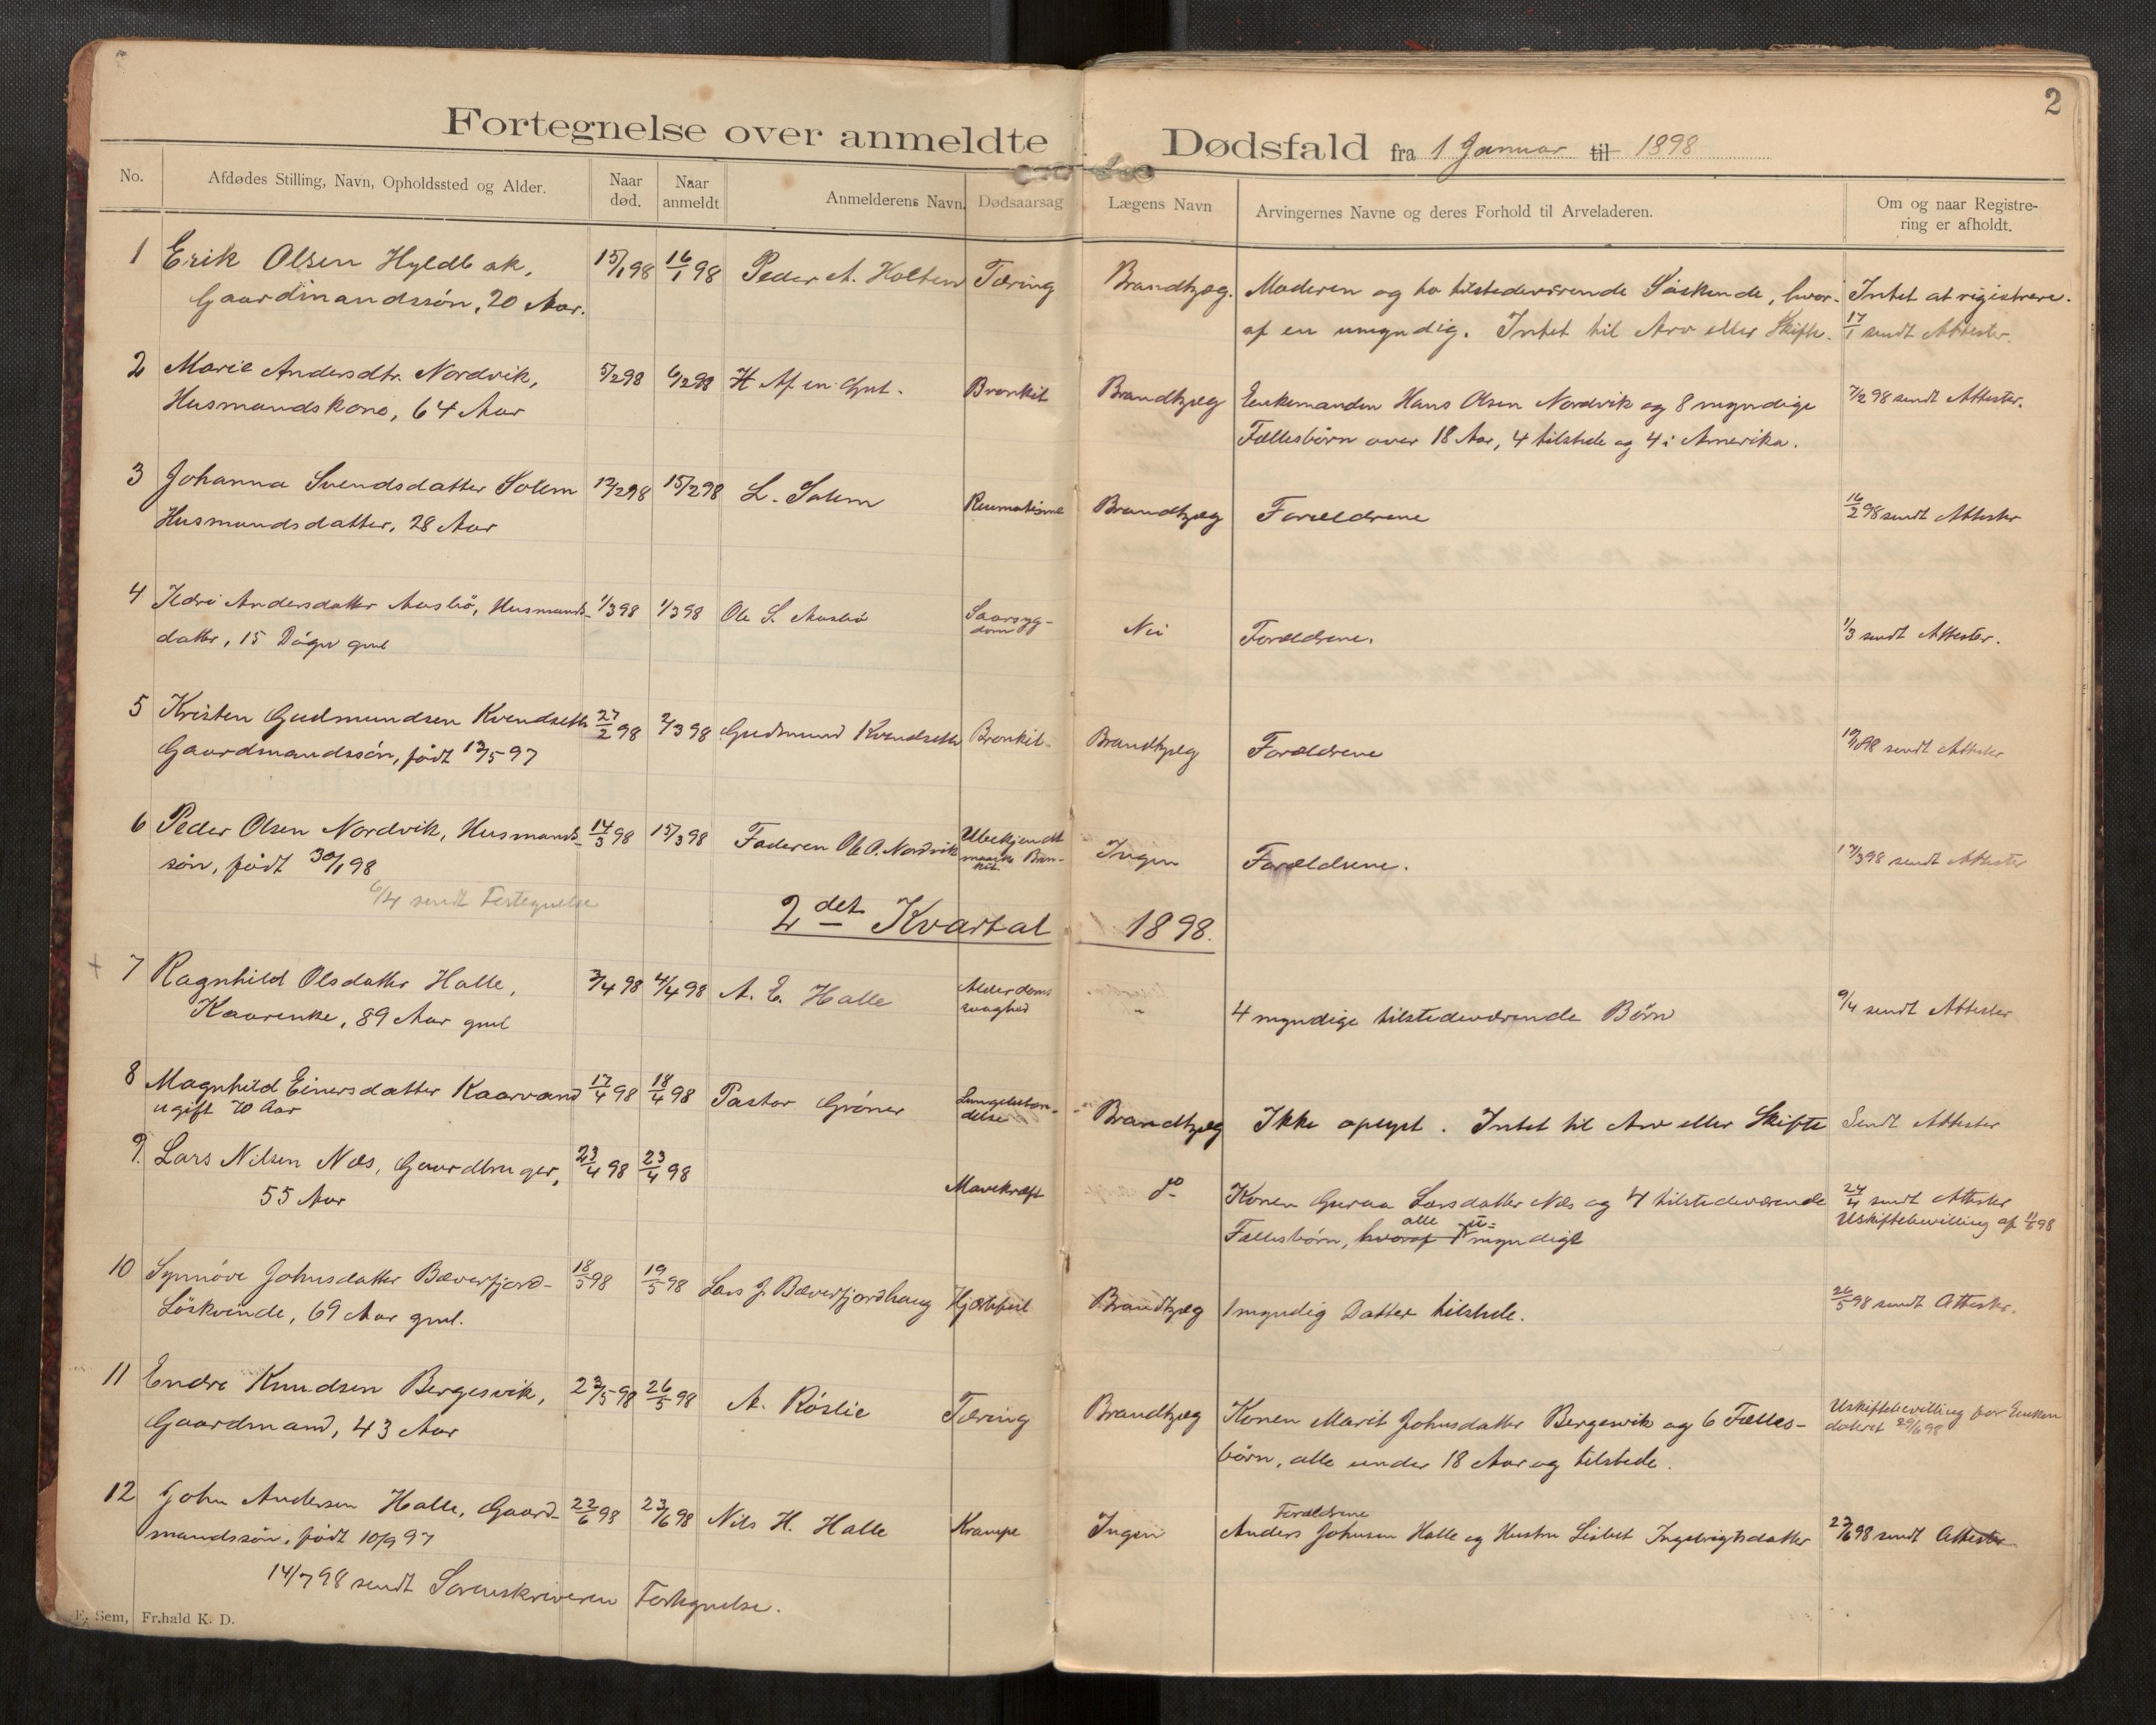 2
Fortegnelse over anmeldte Dødsfald fra 1 Januar til 1898
No. Afdødes Stilling, Navn, Opholdssted og Alder. Naar død. Naar anmeldt Anmelderens Navn. Dødsaarsag Lægens Navn Arvingernes Navne og deres Forhold til Arveladeren. Om og naar Registrering er afholdt.
1 Erik Olsen Hyldbak, 15/1 98 16/1 98 Peder A. Holten Tæring Brandtzæg. Moderen og to tilstedeværende Søskende, hvor- Intet at registrere.
Gaardmandssøn, 20 Aar. af en umyndig. Intet til Arv eller Skifte. 17/1 sendt Attester.
2 Marie Andersdtr. Nordvik, 5/2 98 6/2 98 Bronkit Brandtzæg Enkemanden Hans Olsen Nordvik og 8 myndige 7/2 98 sendt Attester.
Husmandskone, 64 Aar Fællesbörn over 18 Aar, 4 tilstede og 4 i Amerika.
3 Johanna Svendsdatter Solem 12/2 98 15/2 98 L. Solem Reumatisme Brandtzæg Forældrene 16/2 98 sendt Attester
Husmandsdatter, 28 Aar
4 Andersdatter Aasbö, Husmands- 1/3 98 1/3 98 Ole S. Aasbö Saarsyg- Nei Forældrene. 1/3 sendt Attester.
datter, 15 Døgn gml dom
5 Kristen Gudmundsen Kvendseth 27/2 98 2/3 98 Gudmund Kvendseth Bronkit Brandtzæg Forældrene sendt Attester
Gaardmandssön, födt 12/5 97
6 Peder Olsen Nordvik, Husmands- 14/3 98 15/3 98 Faderen Ole O. Nordvik Ubekjendt Ingen Forældrene. 17/3 98 sendt Attester
sön, födt 30/1 98 maaske Bron-
kit
6/4 sendt Fortegnelse
2det Kvartal 1898.
+ 7 Ragnhild Olsdatter Halle, 3/4 98 4/4 98 A. E. Halle Alderdoms " 4 myndige tilstedeværende Börn 9/4 sendt Attester
Kaarenke, 89 Aar gml svaghed
8 Magnhild Einersdatter Kaarvand 17/4 98 18/4 98 Pastor Gröner Lungebetæn- Brandtzæg Ikke oplyst. Intet til Arv eller Skifte Sendt Attester
ugift 70 Aar delse
9. Lars Nilsen Næs, Gaardbruger, 23/4 98 23/4 98 Mavekræft do Konen Guraa Larsdatter Næs og 4 tilstedeværende 24/4 sendt Attester
55 Aar Fællesbörn, hvoraf alle u- myndigt Uskiftebevilling af 98
10 Synnöve Johnsdatter Bæverfjord- 18/5 98 19/5 98 Lars J. Bæverfjordhaug Hjertefeil Brandtzæg 1 myndig Datter tilstede. 26/5 98 sendt Attester.
Löskvinde, 69 Aar gml.
11 Endre Knudsen Bergesvik, 23/5 98 26/5 98 A. Röslie Tæring Brandtzæg Konen Marit Johnsdatter Bergesvik og 6 Fælles- Uskiftebevilling for Enken
Gaardmand, 43 Aar börn, alle under 18 Aar og tilstede. dateret 29/6 98
12 John Andersen Halle, Gaard- 22/6 98 23/6 98 Nils H. Halle Krampe Ingen Forældrene Anders Johnsen Halle og Hustru Lisbet Ingebrigtsdatter 23/6 98 sendt Attester
mandssön, födt 10/9 97
14/7 98 sendt Sorenskriveren Fortegnelse.
E. Sem, Fr.hald K. D.